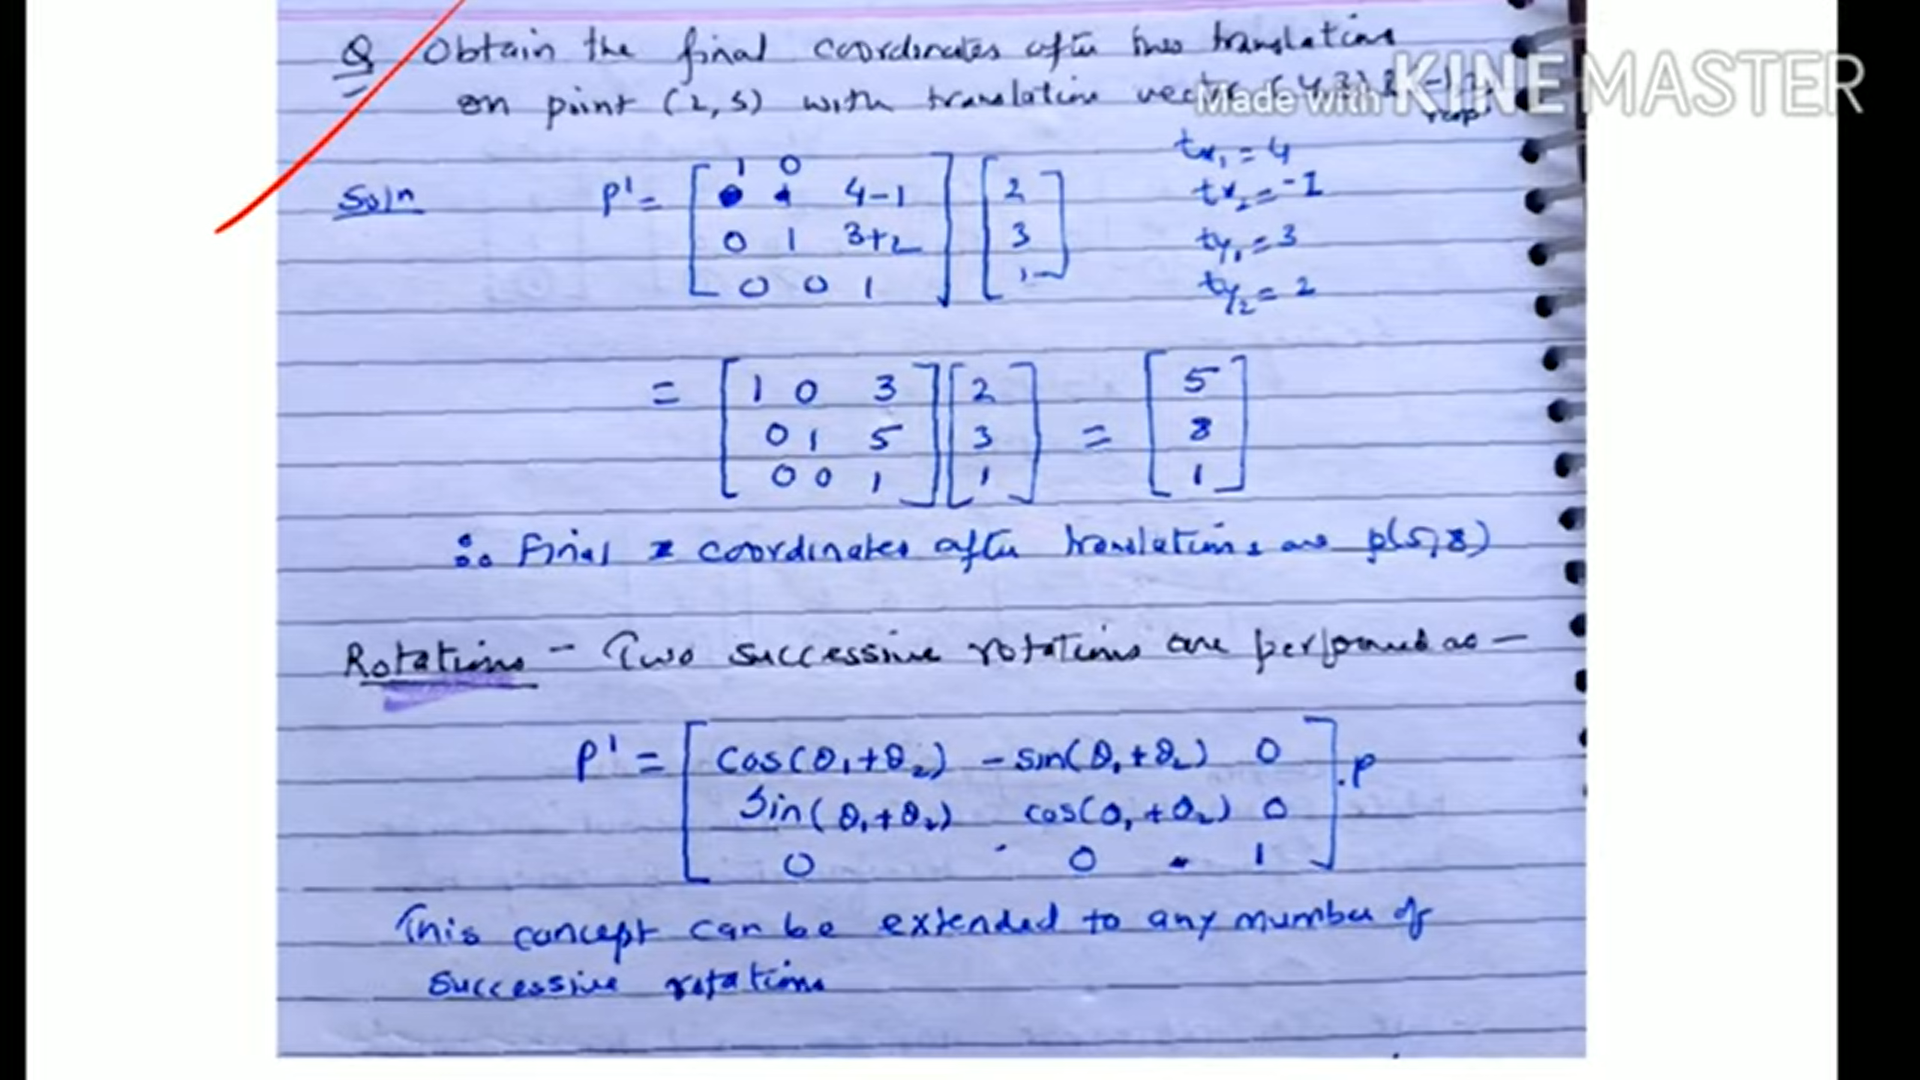 Q Obtain the final coordinates after two translations
on point (2,3) with translation vector (4,3) & -1,2
resp
Made with KINEMASTER
Soln P' = [ 1 0 4-1 ] [ 2 ] tx1 = 4
0 1 3+2 3 tx2 = -1
0 0 1 1 ty1 = 3
ty2 = 2
= [ 1 0 3 ] [ 2 ] = [ 5 ]
0 1 5 3 8
0 0 1 1 1
∴ Final coordinates after translations are p(5,8)
Rotations - Two successive rotations are performed as -
P' = [ cos(θ1+θ2) -sin(θ1+θ2) 0 ] .P
Sin(θ1+θ2) cos(θ1+θ2) 0
0 0 1
This concept can be extended to any number of
successive rotations